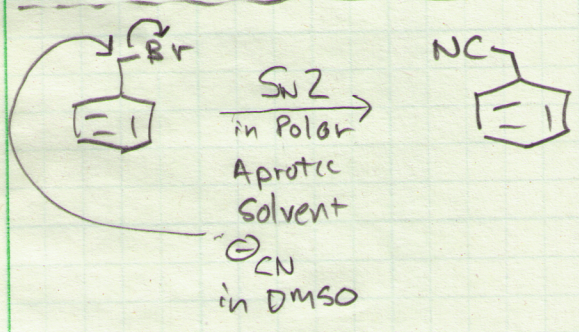 Br
NC
SN2
in Polar
Aprotic
Solvent
⊖CN
in DMSO